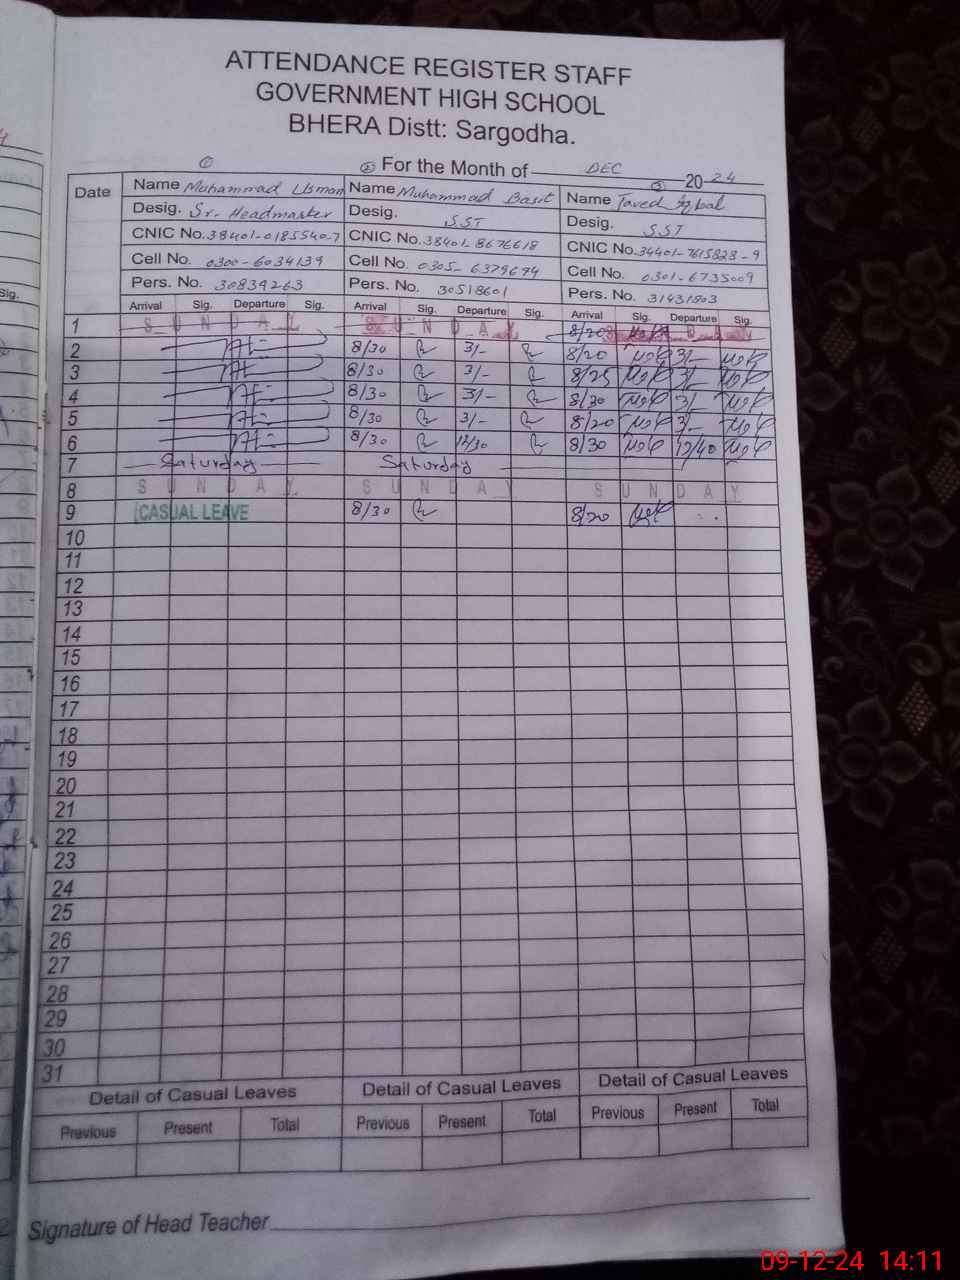 ATTENDANCE REGISTER STAFF
GOVERNMENT HIGH SCHOOL
BHERA Distt: Sargodha.
① ② For the Month of DEC ③ 2024
Date Name Muhammad Usman Name Muhammad Basit Name Javed Iqbal
Desig. Sr. Headmaster Desig. SST Desig. SST
CNIC No. 38401-0185540-7 CNIC No. 38401-8676618 CNIC No. 34401-7615828-9
Cell No. 0300-6034139 Cell No. 0305-6379694 Cell No. 0301-6735009
Pers. No. 30839263 Pers. No. 30518601 Pers. No. 31431803
Arrival Sig. Departure Sig. Arrival Sig. Departure Sig. Arrival Sig. Departure Sig.
1 SUNDAY SUNDAY 8/20 DAY
2 8/30 3/- 8/20 3/-
3 8/30 3/- 8/25 3/-
4 8/30 3/- 8/20 3/-
5 8/30 3/- 8/20 3/-
6 8/30 12/30 8/30 12/40
7 Saturday Saturday
8 SUNDAY SUNDAY SUNDAY
9 CASUAL LEAVE 8/30 8/20
10
11
12
13
14
15
16
17
18
19
20
21
22
23
24
25
26
27
28
29
30
31
Detail of Casual Leaves Detail of Casual Leaves Detail of Casual Leaves
Previous Present Total Previous Present Total Previous Present Total
Signature of Head Teacher
09-12-24 14:11